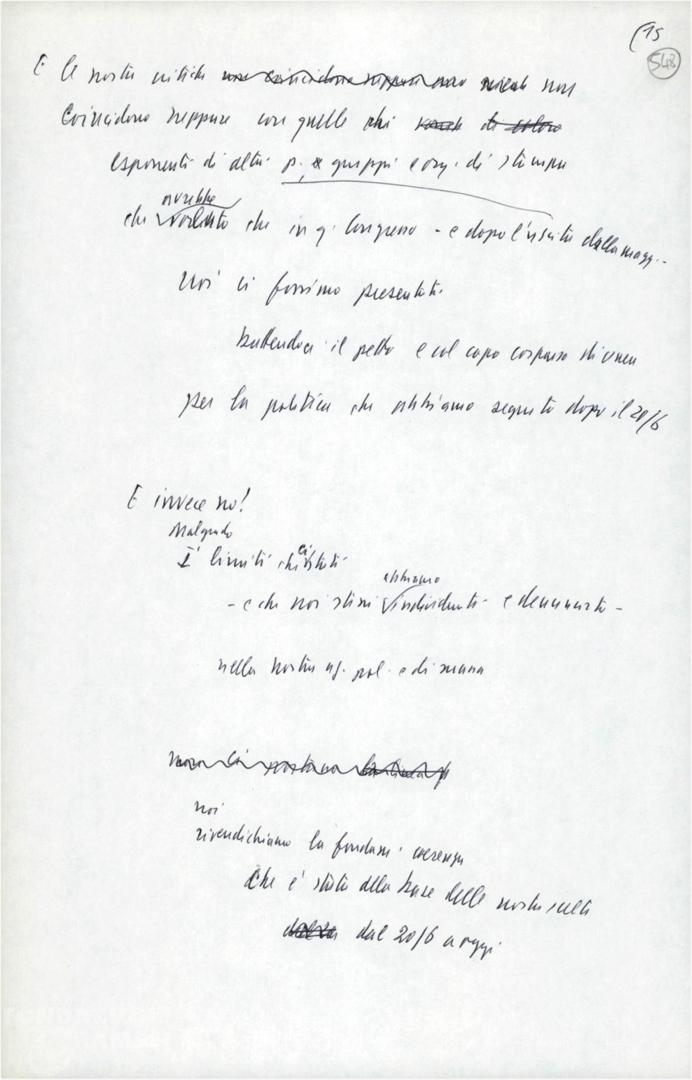 (15
548
E le nostre critiche non coincidono neppure non
coincidono neppure con quelle di
esponenti di altri p. e gruppi e org. di stampa
avrebbe
che voluto che in q. Congresso - e dopo l'uscita dalla magg..
noi ci fossimo presentati
battendoci il petto e col capo cosparso di cenere
per la politica che abbiamo seguito dopo il 20/6
E invece no!
Malgrado
I limiti che ci stati
abbiamo
- e che noi stessi individuati e denunciato -
nella nostra az. pol. e di massa
non ci
noi
rivendichiamo la fondam. coerenza
che è stata alla base delle nostre scelte
dal 20/6 a oggi